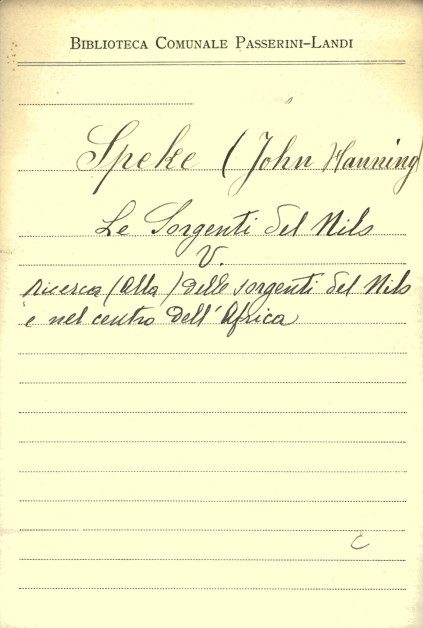 BIBLIOTECA COMUNALE PASSERINI-LANDI
Speke (John Hanning)
Le Sorgenti del Nilo
V.
ricerca (Alla) delle sorgenti del Nilo
e nel centro dell'Africa
C